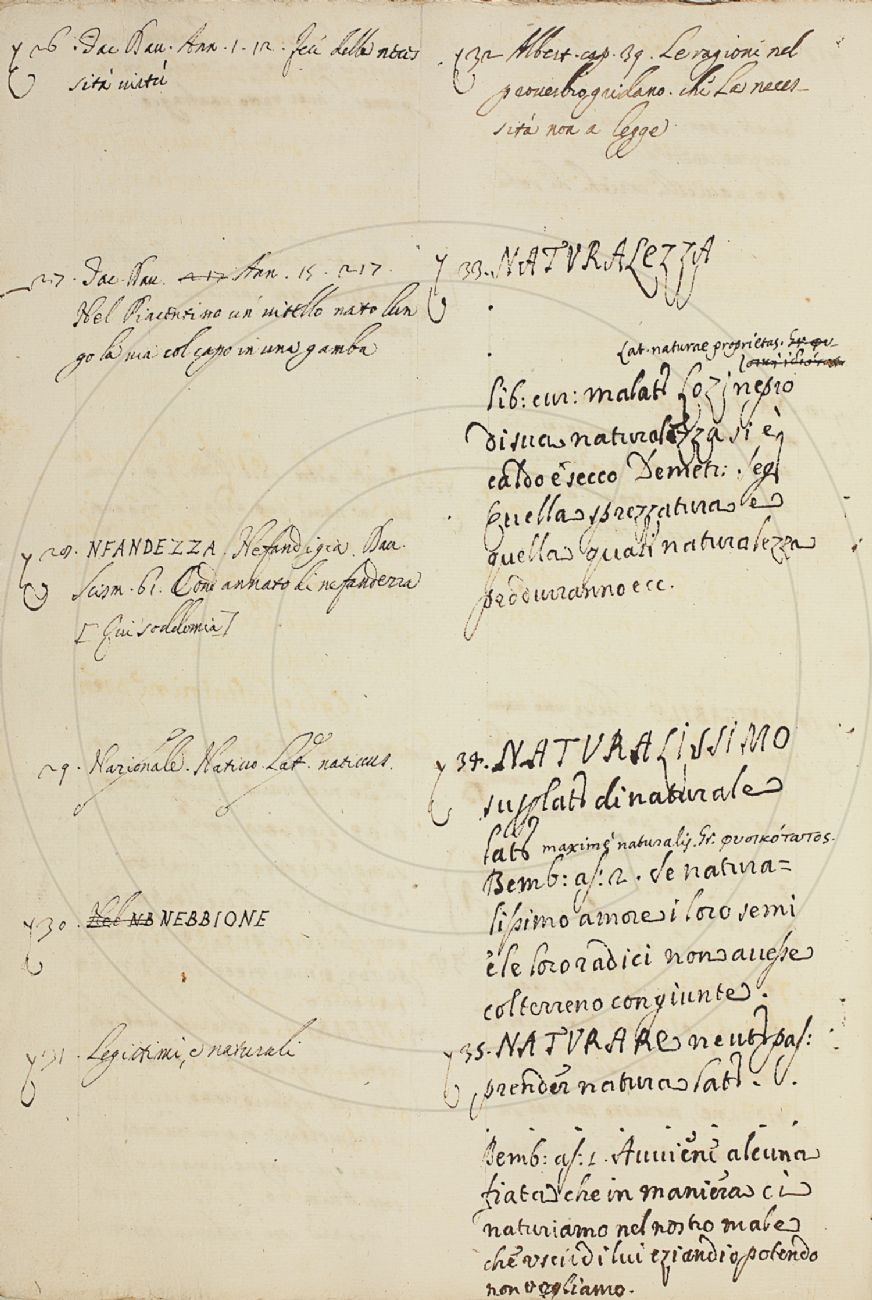 26. Dav. Dav. Ann. 1. 12. feà della neces
sità virtù
27. Dav. Ann. 15. 217.
Nel Piacentino un vitello nato lun
go la via col capo in una gamba
28. NFANDEZZA. Nefandigia. Dav.
Scism. 61. Condannato di nefandezza
[Qui soddomia]
29. Nazionale. Nativo. Lat. nativus.
30. Nel NB NEBBIONE
31. Legittimi, e naturali
32 Albert. cap. 39. Le ragioni nel
proverbio gridano. chè La neces-
sità non a legge
33. NATVRALEZZA
Lat. naturae proprietas. Gr.
lib: cur: malatt
di sua naturalezza si è
caldo e secco Demetr: seg
Quella sprezzatura e
quella quasi naturalezza
produrranno ecc.
34. NATVRALISSIMO
superlat di naturale
lat maximè naturalis. Gr. φυσικότατος.
Bemb: as: 2. Se natura=
lissimo amore i loro semi
e le loro radici non avesse
col terreno congiunte.
35. NATVRARE neutr pas:
prender natura lat.
Bemb: as: 1. Avviene alcuna
fiata che in maniera ci
naturiamo nel nostro male
che uscir di lui eziandio potendo
non vogliamo.